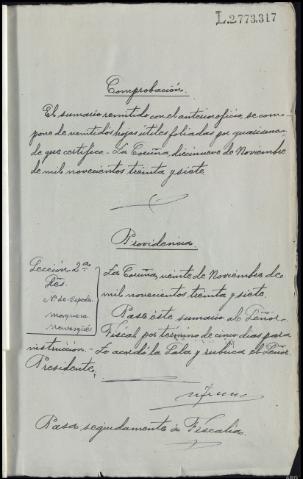 L.2773.317
Comprobación.
El sumario remitido con el anterior oficio, se com-
pone de ventidos hojas útiles foliadas por guarismo
de que certifico. La Coruña, diecinueve de Noviembre
de mil novecientos treinta y siete
Providencia
Sección 2ª
Sres.
La Coruña, veinte de Noviembre de
mil novecientos treinta y siete.
Pase este sumario al Señor
Fiscal por termino de cinco dias para
instrucción. Lo acordó la Sala y rubrica el Señor
Presidente,
Pasa seguidamente a Fiscalia